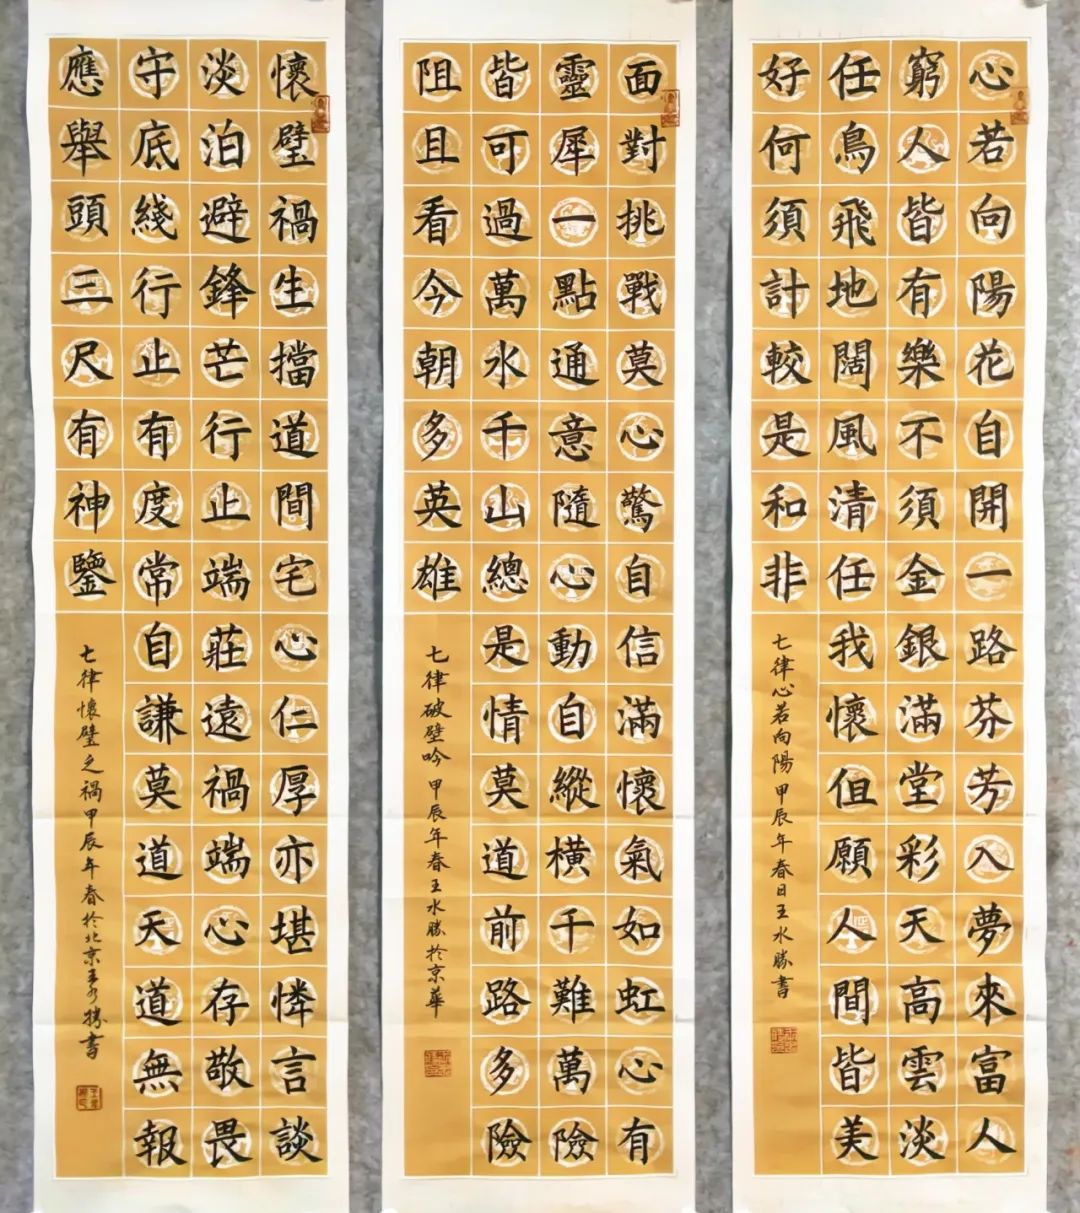 心若向陽花自開一路芬芳入夢來富人
窮人皆有樂不須金銀滿堂彩天高雲淡
任鳥飛地闊風清任我懷但願人間皆美
好何須計較是和非
七律心若向陽甲辰年春日王水勝書
面對挑戰莫心驚自信滿懷氣如虹心有
靈犀一點通意隨心動自縱橫千難萬險
皆可過萬水千山總是情莫道前路多險
阻且看今朝多英雄
七律破壁吟甲辰年春王水勝於京華
懷璧禍生擋道間宅心仁厚亦堪憐言談
淡泊避鋒芒行止端莊遠禍端心存敬畏
守底綫行止有度常自謙莫道天道無報
應舉頭三尺有神鑒
七律懷璧之禍甲辰年春於北京王水勝書